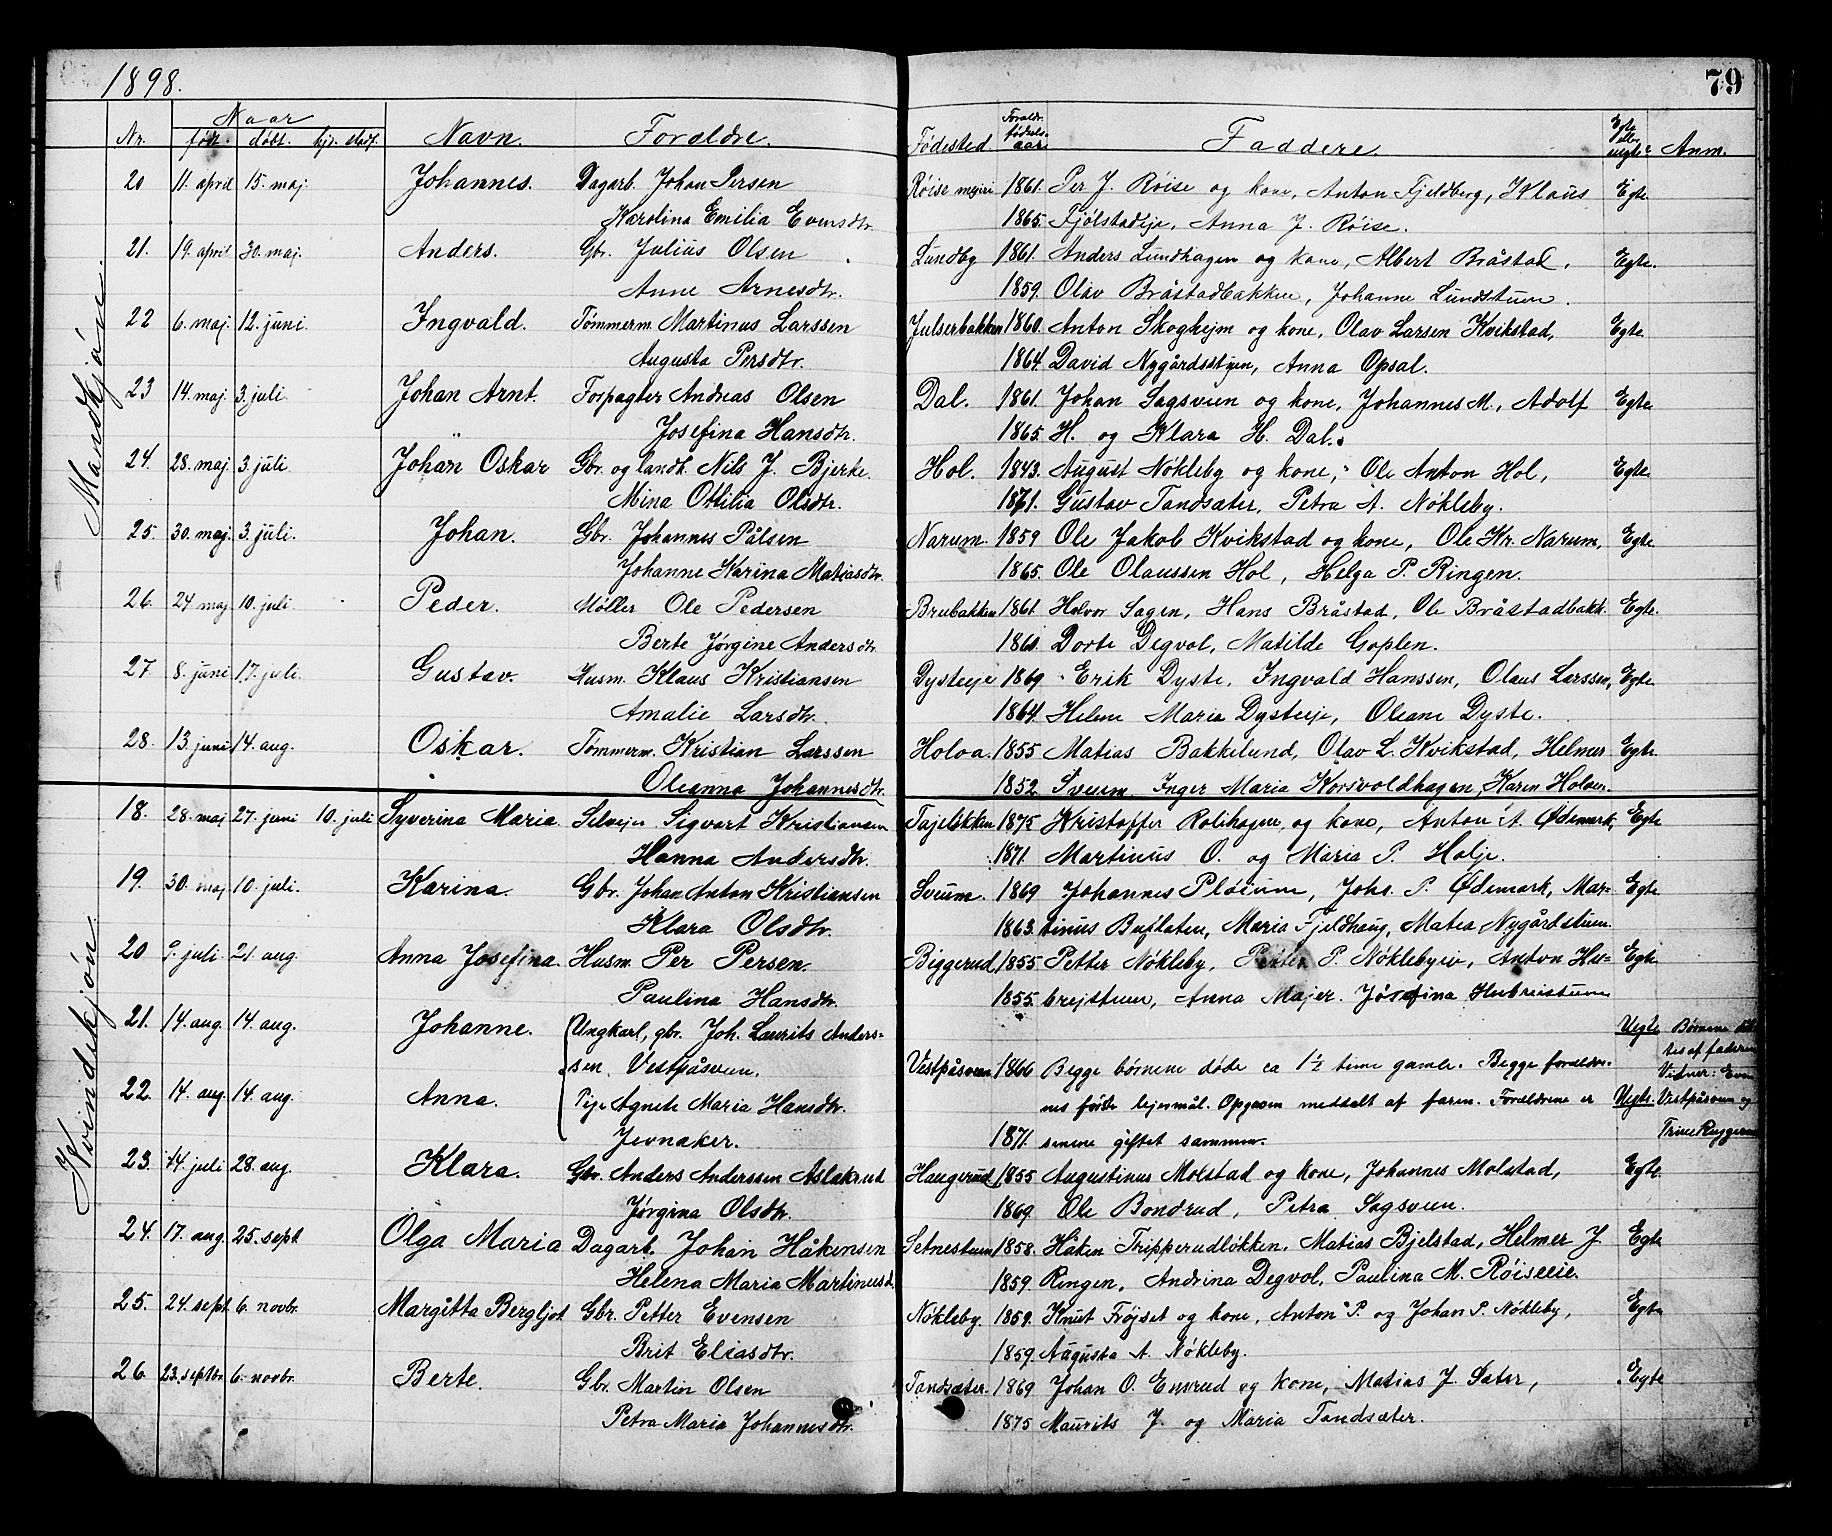 1898. 79
Naar
Nr. født. døbt. hjd. stadf. Navn. Forældre. Fødested Forældr. fødselsaar. Faddere. Egte eller uegte. Anm.
Mandkjøn.
20 11. april 15. maj. Johannes. Dagarb. Johan Persen Røise mejeri 1861. Per J. Røise og kone, Anton Fjeldberg, Klaus Egte.
Karolina Emilia Evensdtr. 1865. Fjølstadeje, Anna J. Røise.
21. 19. april 30. maj. Anders. Gbr. Julius Olsen Lundby 1861. Anders Lundhagen og kone, Albert Bråstad, Egte.
Anne Arnesdtr. 1859. Olav Bråstadbakken, Johanne Lundstuen.
22 6. maj. 12. juni. Ingvald. Tømmerm. Martinus Larssen Julserbakken 1860. Anton Skoghejm og kone, Olav Larsen Kvikstad, Egte
Augusta Persdtr. 1864. David Nygårdsstuen, Anna Opsal.
23 14. maj. 3. juli. Johan Arnt. Forpagter Andreas Olsen Dal. 1861. Johan Sagsveen og kone, Johannes M., Adolf Egte
Josefina Hansdtr. 1865. H. og Klara H. Dal.
24. 28. maj. 3. juli. Johan Oskar Gbr. og landh. Nils J. Bjerke. Hol. 1843. August Nøkleby og kone, Ole Anton Hol, Egte
Mina Ottilia Olsdtr. 1871. Gustav Tandsæter, Petra A. Nøkleby.
25. 30. maj. 3. juli. Johan. Gbr. Johannes Pålsen Narum. 1859 Ole Jakob Kvikstad og kone, Ole Kr. Narum, Egte
Johanne Karina Matiasdtr. 1865. Ole Olaussen Hol, Helga P. Ringen.
26. 24 maj. 10. juli. Peder. Møller Ole Pedersen Brubakken 1861. Halvor Sagen, Hans Bråstad, Ole Bråstadbakk. Egte.
Berte Jørgine Andersdtr. 1860. Dorte Degvol, Matilde Goplen.
27 8. juni 17. juli. Gustav. Husm. Klaus Kristiansen Dysteeje 1869 Erik Dyste, Ingvald Hanssen, Olaus Larssen, Egte
Amalie Larsdtr. 1864. Helene Maria Dysteeje, Oleane Dyste.
28. 13. juni 14. aug. Oskar. Tømmerm. Kristian Larssen Holoa. 1855 Matias Bakkelund, Olav L. Kvikstad, Helmer Egte
Oleanna Johannesdtr. 1852. Sveum, Inger Maria Korsvoldhagen, Karen Holoen.
Kvindekjøn.
18. 28. maj 27. juni 10. juli Syverina Maria Selvejer Sigvart Kristiansen Tajeløkken 1875 Kristoffer Rolihagen og kone, Anton A. Ødemark, Egte
Hanna Andersdtr. 1871. Martinus O. og Maria P. Holje.
19. 30. maj 10. juli. Karina. Gbr. Johan Anton Kristiansen Sveum. 1869 Johannes Pløium, Johs. P. Ødemark, Mar- Egte
Klara Olsdtr. 1863. tinus Buflaten, Maria Fjeldhaug, Matea Nygårdstuen.
20 9. juli 21. aug. Anna Josefina. Husm. Per Persen. Biggerud 1855 Petter Nøkleby, Petter P. Nøklebyeie, Anton Hu- Egte
Paulina Hansdtr. 1855. brejstuen, Anna Majer. Josefina Hubreistuen
21. 14. aug. 14. aug. Johanne. Ungkarl, gbr. Joh. Laurits Anders- Uegte Børnene døb-
sen, Vestpåsveen. Vestpåsveen 1866 Begge børnene døde ca 1½ time gamle. Begge forældre- tes af faderen
22. 14. aug. 14. aug. Anna. Pige Agnete Maria Hansdtr. nes første lejermål. Opgaven meddelt af faren. Forældrene er Uegte. Vidner: Even Vestpåsveen og
Jevnaker. 1871. senere giftet sammen. Trine Ruggerud
23. 14. juli 28. aug. Klara. Gbr. Anders Anderssen Aslakrud Haugerud 1855 Augustinus Molstad og kone, Johannes Molstad, Egte
Jørgina Olsdtr. 1869. Ole Bondrud, Petra Sagsveen.
24. 17. aug 25. sept Olga Maria Dagarb. Johan Håkensen Setnestuen 1858. Håken Tripperudløkken, Matias Bjelstad, Helmer J. Egte
Helena Maria Martinusd. 1859. Ringen, Andrina Degvol, Paulina M. Røiseeie.
25. 24. sept. 6. novbr. Margitta Bergljot Gbr. Petter Evensen Nøkleby. 1859. Knut Frøjset og kone, Anton P. og Johan P. Nøkleby, Egte
Brit Eliasdtr. 1859. Augusta A. Nøkleby.
26. 23. septbr. 6. novbr. Berte. Gbr. Martin Olsen Tandsæter. 1869 Johan O. Enerud og kone, Matias J. Sæter, Egte
Petra Maria Johannesdtr. 1875 Maurits J. og Maria Tandsæter.